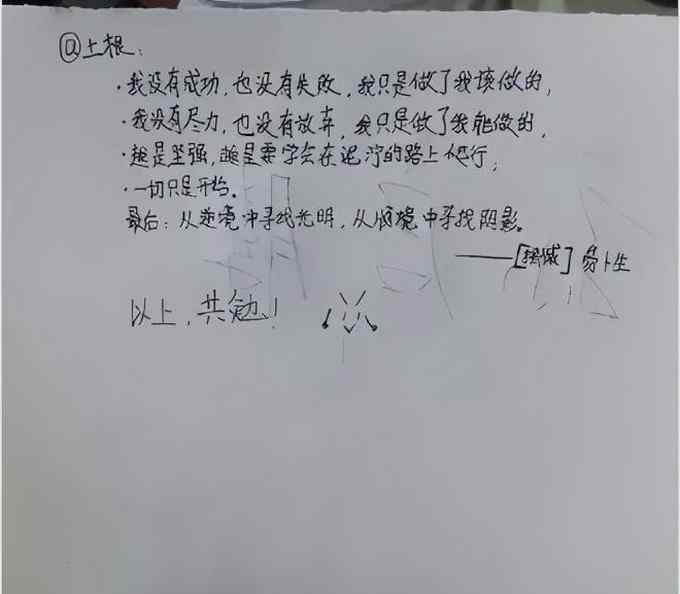 @上根:
·我没有成功,也没有失败,我只是做了我该做的,
·我没有尽力,也没有放弃,我只是做了我能做的,
·越是坚强,越是要学会在泥泞的路上爬行;
·一切只是开始。
最后:从逆境中寻找光明,从顺境中寻找阴影。
——[挪威] 易卜生
以上,共勉!